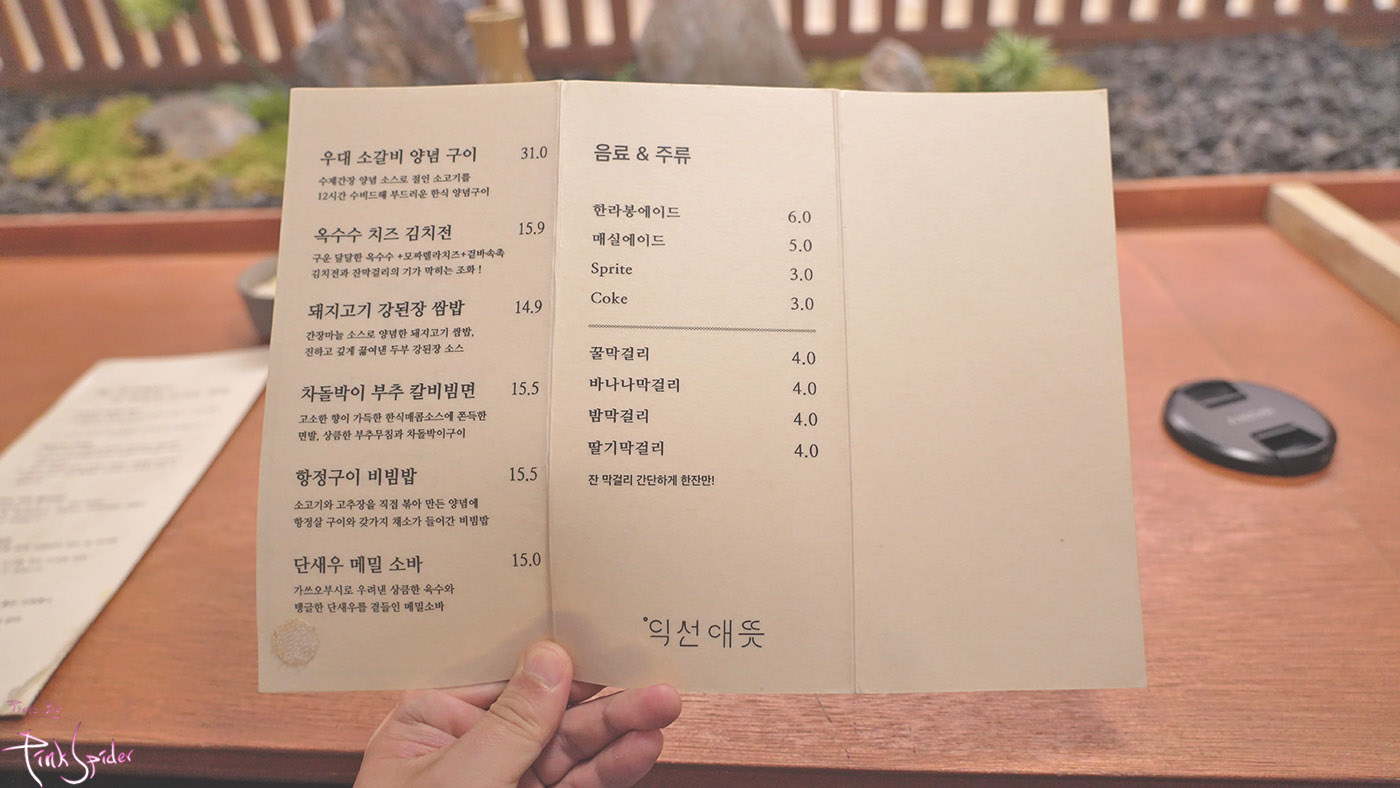 우대 소갈비 양념 구이 31.0
수제간장 양념 소스로 절인 소고기를
12시간 수비드해 부드러운 한식 양념구이
옥수수 치즈 김치전 15.9
구운 달달한 옥수수 +모짜렐라치즈+겉바속촉
김치전과 잔막걸리의 기가 막히는 조화 !
돼지고기 강된장 쌈밥 14.9
간장마늘 소스로 양념한 돼지고기 쌈밥,
진하고 깊게 끓여낸 두부 강된장 소스
차돌박이 부추 칼비빔면 15.5
고소한 향이 가득한 한식매콤소스에 쫀득한
면발, 상큼한 부추무침과 차돌박이구이
항정구이 비빔밥 15.5
소고기와 고추장을 직접 볶아 만든 양념에
항정살 구이와 갖가지 채소가 들어간 비빔밥
단새우 메밀 소바 15.0
가쓰오부시로 우려낸 상큼한 육수와
탱글한 단새우를 곁들인 메밀소바
음료 & 주류
한라봉에이드 6.0
매실에이드 5.0
Sprite 3.0
Coke 3.0
꿀막걸리 4.0
바나나막걸리 4.0
밤막걸리 4.0
딸기막걸리 4.0
잔 막걸리 간단하게 한잔만!
익선애뜻
PinkSpider